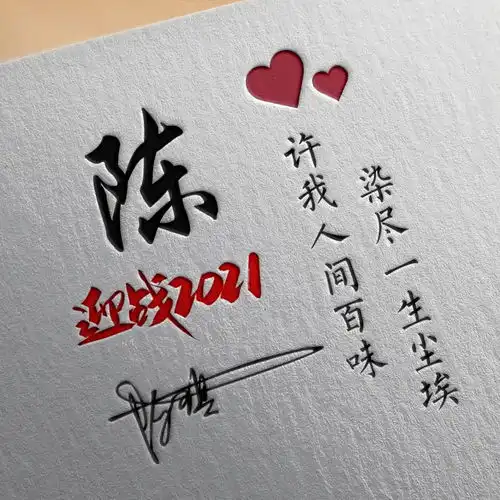 陈
迎战2021
染尽一生尘埃
许我人间百味